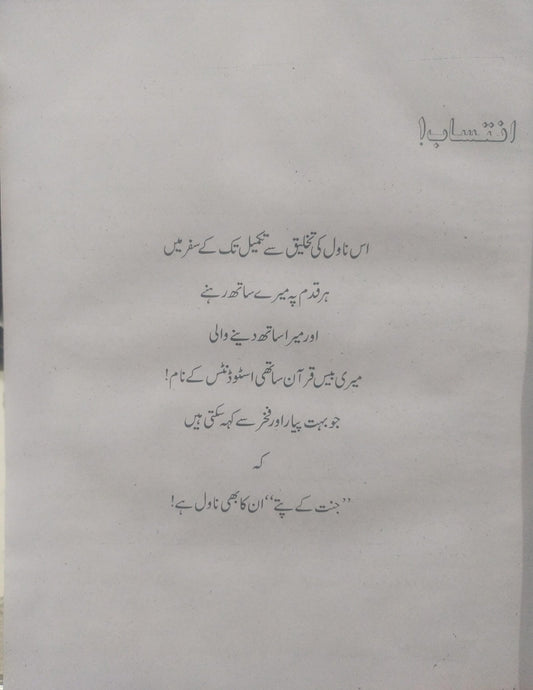 انتساب!
اس ناول کی تخلیق سے تکمیل تک کے سفر میں
ہر قدم پہ میرے ساتھ رہنے
اور میرا ساتھ دینے والی
میری بیس قرآن ساتھی اسٹوڈنٹس کے نام!
جو بہت پیار اور فخر سے کہہ سکتی ہیں
کہ
’’جنت کے پتے‘‘ ان کا بھی ناول ہے!